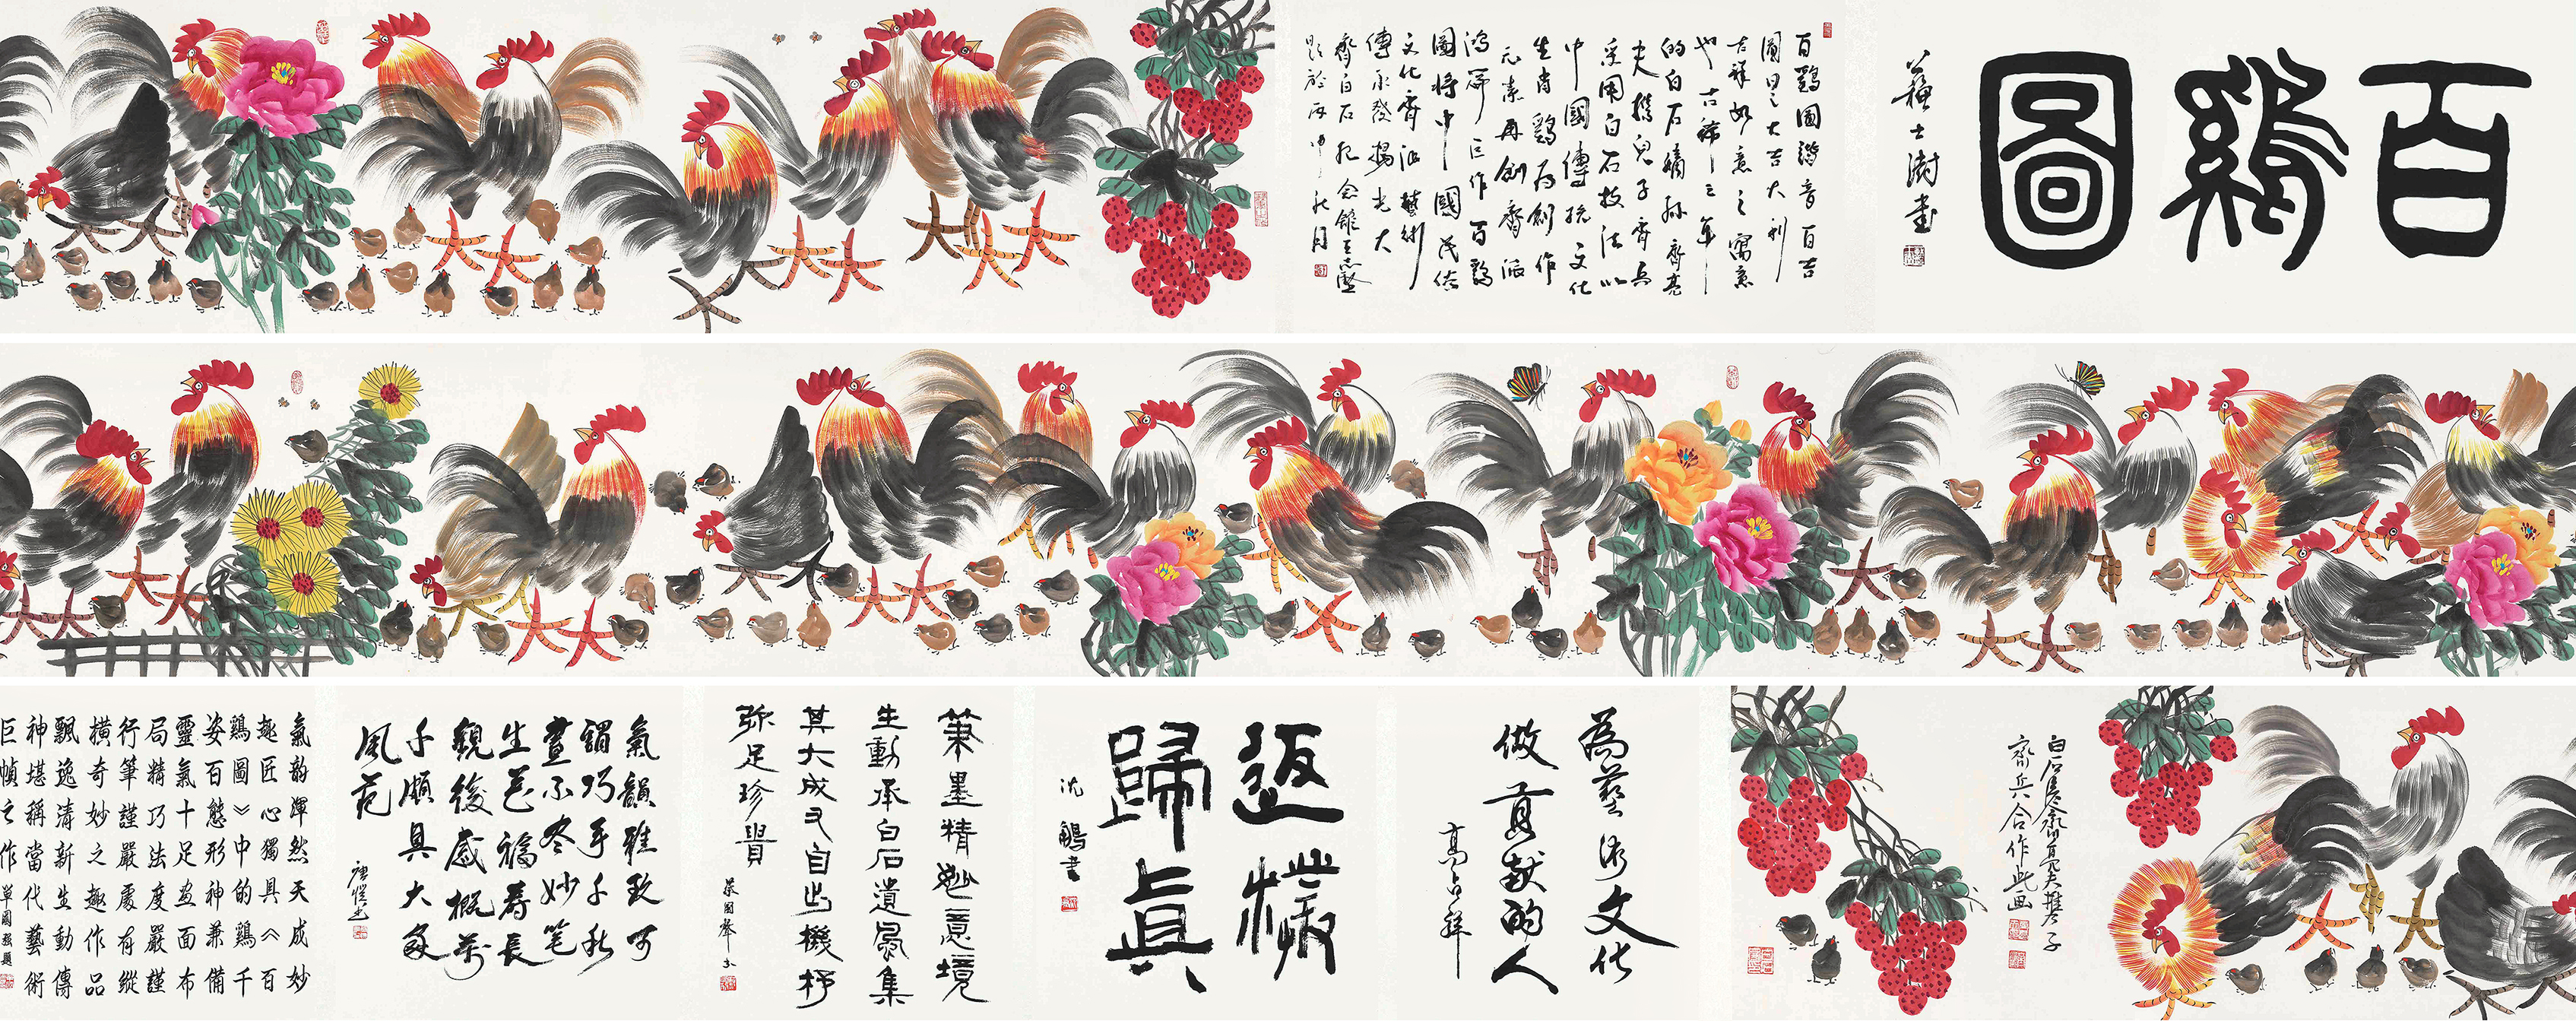 百鷄圖
蘇士澍書
百鷄圖諧音百吉
圖是大吉大利
吉祥如意之寓意
也古稀之年
的白石嫡孫齊亮
夫攜兒子齊兵
采用白石技法以
中國傳統文化
生肖鷄为創作
元素再創齊派
鴻篇巨作百鷄
圖將中國民俗
文化齊派藝術
傳承發揚光大
齊白石紀念館王志堅
題於丙申秋月
白石齊亮夫攜子
齊兵合作此画
為藝術文化
做貢獻的人
高占祥
返樸
歸真
沈鵬書
筆墨精妙意境
生動承白石遺風集
其大成又自出機杼
弥足珍貴
蔡國聲書
氣韻雅致可
謂巧手千秋
畫不盡妙笔
生花福壽長
觀後感概萬
千頗具大家
風范
氣韵渾然天成妙
趣匠心獨具《百
鷄圖》中的鷄千
姿百態形神兼備
靈氣十足画面布
局精巧法度嚴謹
行筆謹嚴處有縱
橫奇妙之趣作品
飄逸清新生動傳
神堪稱當代藝術
巨幀之作單國強題